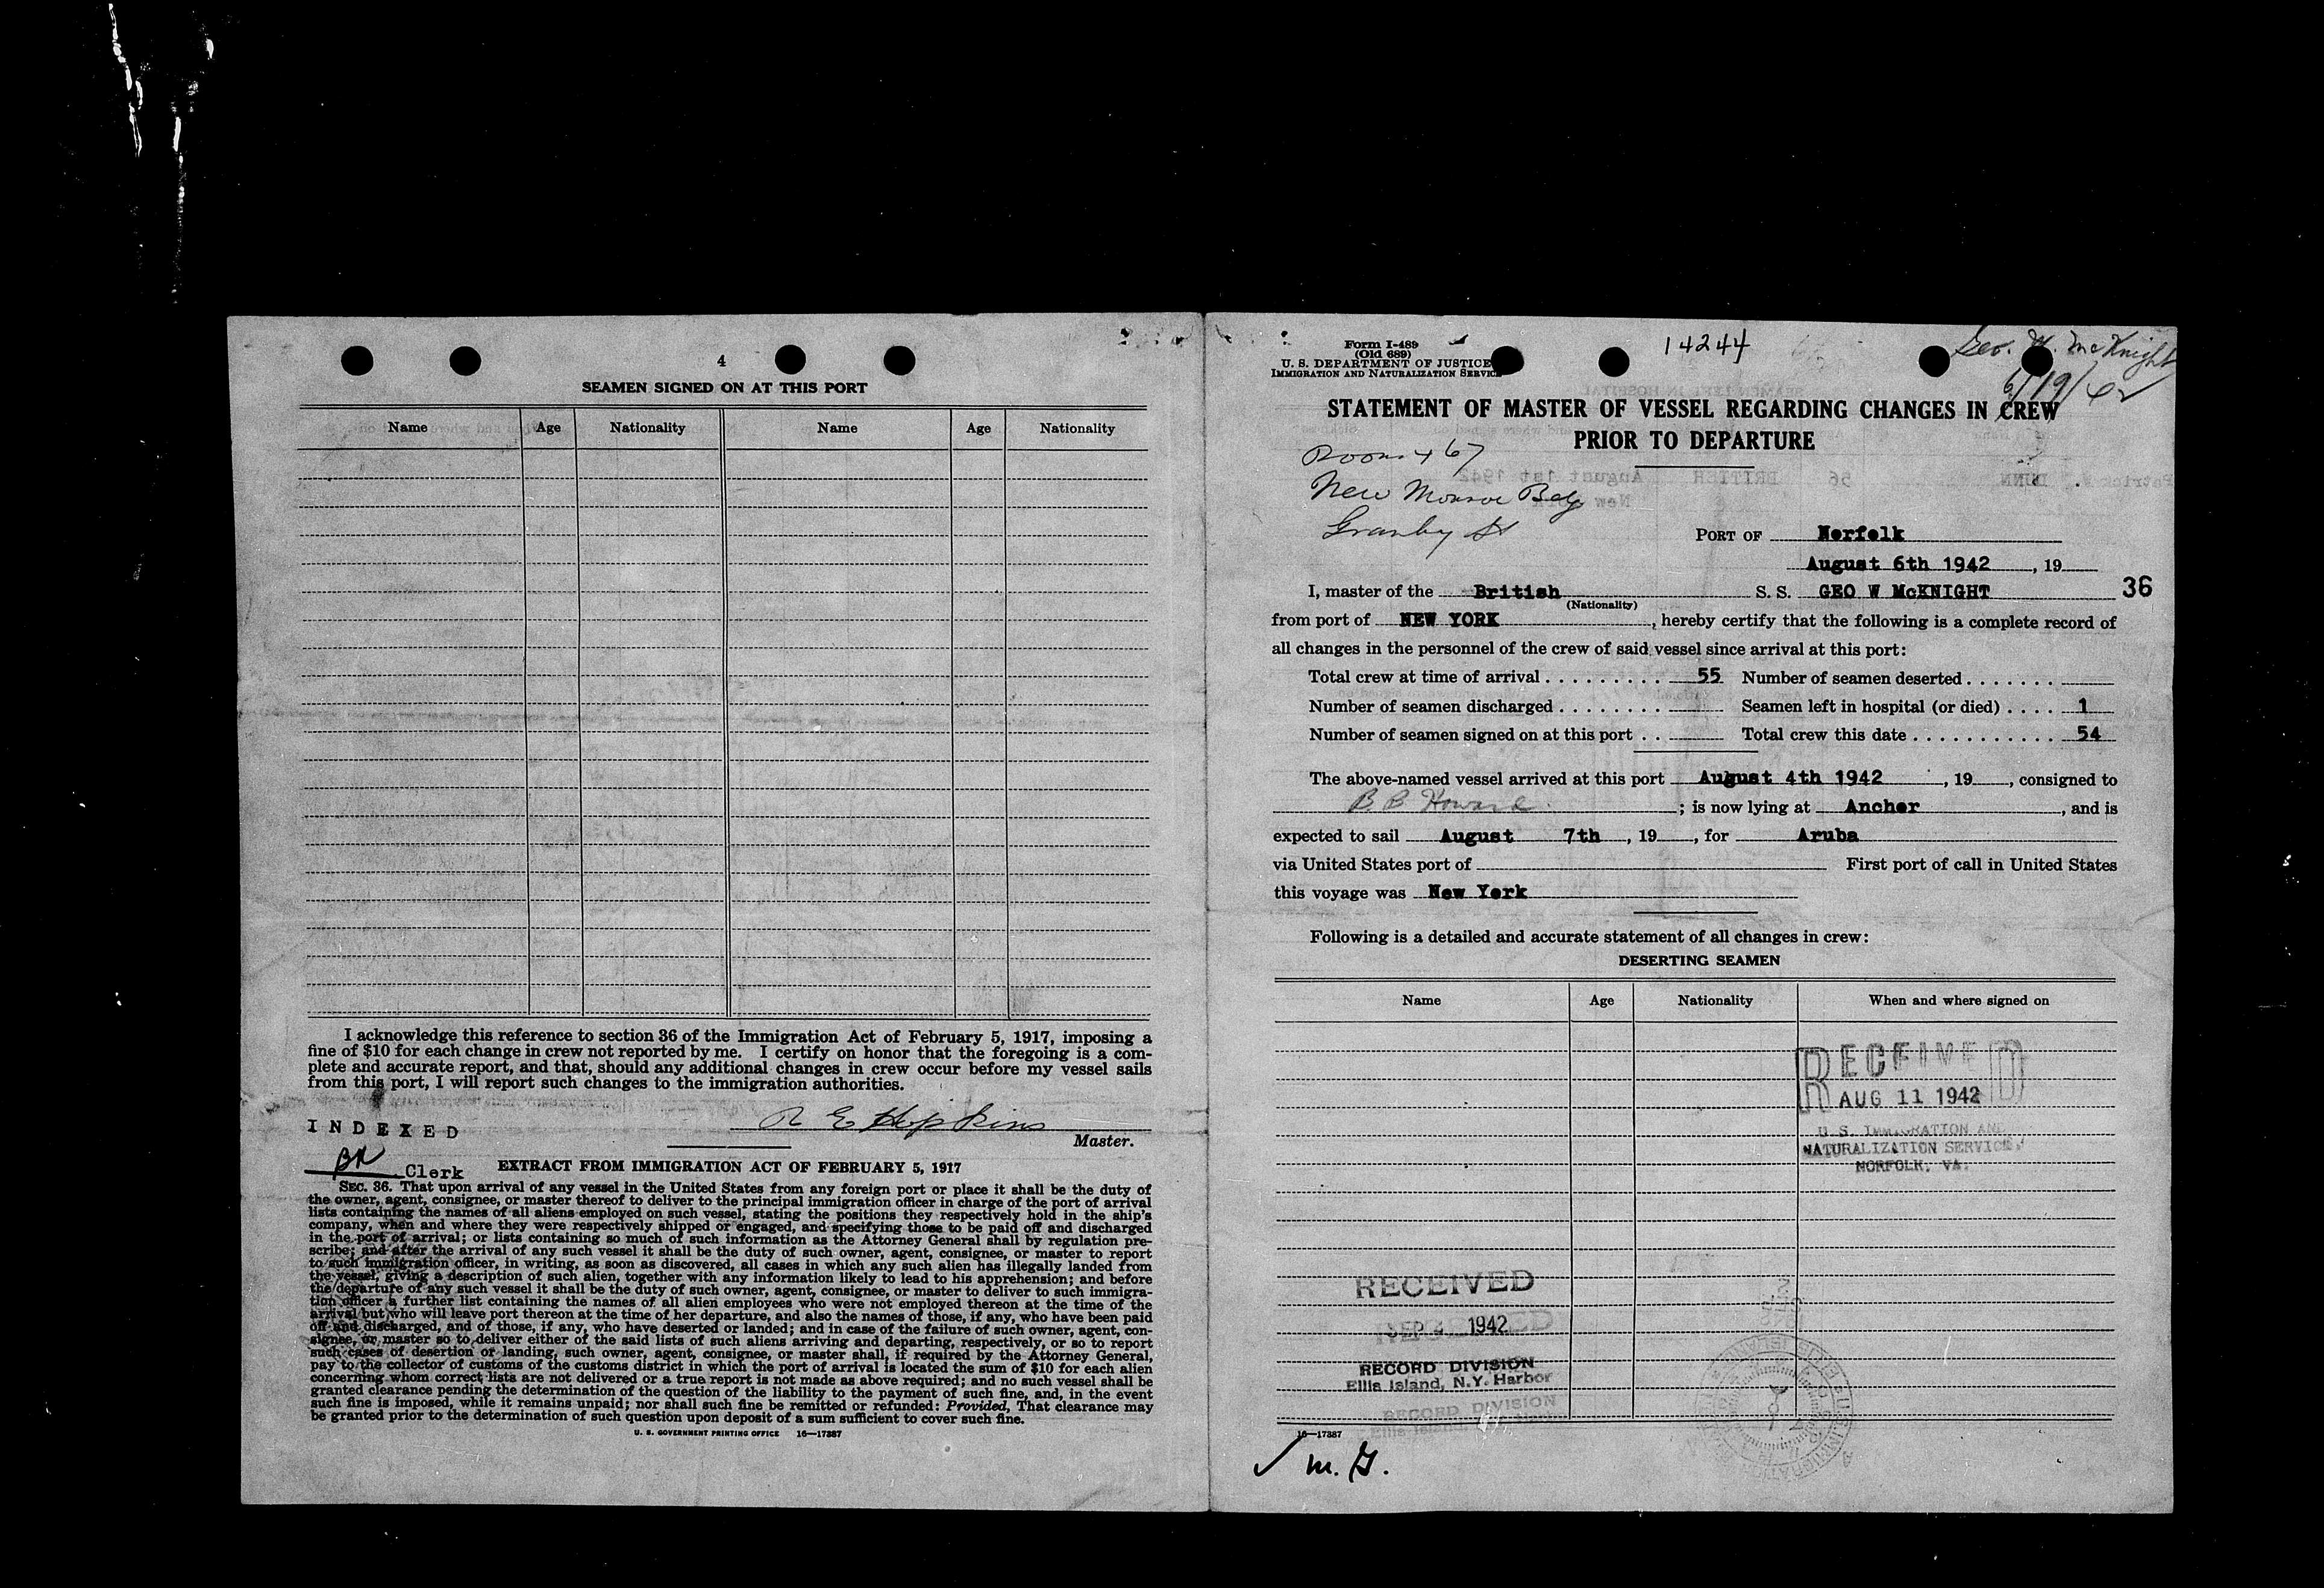 4
SEAMEN SIGNED ON AT THIS PORT
Name Age Nationality Name Age Nationality
I acknowledge this reference to section 36 of the Immigration Act of February 5, 1917, imposing a
fine of $10 for each change in crew not reported by me. I certify on honor that the foregoing is a com-
plete and accurate report, and that, should any additional changes in crew occur before my vessel sails
from this port, I will report such changes to the immigration authorities.
R E Hopkins
INDEXED
Master.
BR Clerk
EXTRACT FROM IMMIGRATION ACT OF FEBRUARY 5, 1917
SEC. 36. That upon arrival of any vessel in the United States from any foreign port or place it shall be the duty of
the owner, agent, consignee, or master thereof to deliver to the principal immigration officer in charge of the port of arrival
lists containing the names of all aliens employed on such vessel, stating the positions they respectively hold in the ship's
company, when and where they were respectively shipped or engaged, and specifying those to be paid off and discharged
in the port of arrival; or lists containing so much of such information as the Attorney General shall by regulation pre-
scribe; and after the arrival of any such vessel it shall be the duty of such owner, agent, consignee, or master to report
to such immigration officer, in writing, as soon as discovered, all cases in which any such alien has illegally landed from
the vessel, giving a description of such alien, together with any information likely to lead to his apprehension; and before
the departure of any such vessel it shall be the duty of such owner, agent, consignee, or master to deliver to such immigra-
tion officer a further list containing the names of all alien employees who were not employed thereon at the time of the
arrival but who will leave port thereon at the time of her departure, and also the names of those, if any, who have been paid
off and discharged, and of those, if any, who have deserted or landed; and in case of the failure of such owner, agent, con-
signee, or master so to deliver either of the said lists of such aliens arriving and departing, respectively, or so to report
such cases of desertion or landing, such owner, agent, consignee, or master shall, if required by the Attorney General,
pay to the collector of customs of the customs district in which the port of arrival is located the sum of $10 for each alien
concerning whom correct lists are not delivered or a true report is not made as above required; and no such vessel shall be
granted clearance pending the determination of the question of the liability to the payment of such fine, and, in the event
such fine is imposed, while it remains unpaid; nor shall such fine be remitted or refunded: Provided, That clearance may
be granted prior to the determination of such question upon deposit of a sum sufficient to cover such fine.
U. S. GOVERNMENT PRINTING OFFICE 16—17387
Form I-489
(Old 689)
U. S. DEPARTMENT OF JUSTICE
IMMIGRATION AND NATURALIZATION SERVICE
14244
Geo. W. McKnight
6/19/42
STATEMENT OF MASTER OF VESSEL REGARDING CHANGES IN CREW
PRIOR TO DEPARTURE
Room 467
New Monroe Bldg
Granby St
PORT OF Norfolk
August 6th 1942, 19
I, master of the British S. S. GEO W McKNIGHT 36
(Nationality)
from port of NEW YORK, hereby certify that the following is a complete record of
all changes in the personnel of the crew of said vessel since arrival at this port:
Total crew at time of arrival 55 Number of seamen deserted
Number of seamen discharged Seamen left in hospital (or died) 1
Number of seamen signed on at this port Total crew this date 54
The above-named vessel arrived at this port August 4th 1942, 19, consigned to
B. B Howard; is now lying at Anchor, and is
expected to sail August 7th, 19, for Aruba
via United States port of First port of call in United States
this voyage was New York
Following is a detailed and accurate statement of all changes in crew:
DESERTING SEAMEN
Name Age Nationality When and where signed on
RECEIVED
AUG 11 1942
U. S. IMMIGRATION AND
NATURALIZATION SERVICE
NORFOLK, VA.
RECEIVED
SEP 4 1942
RECORD DIVISION
Ellis Island, N.Y. Harbor
RECORD DIVISION
16—17387
m. G.